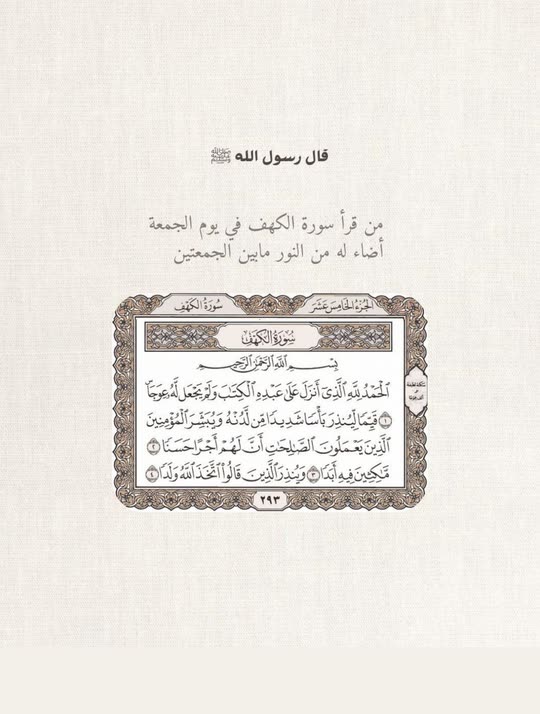 قال رسول الله ﷺ
من قرأ سورة الكهف في يوم الجمعة
أضاء له من النور مابين الجمعتين
الجزء الخامس عشر
سورة الكهف
سورة الكهف
بِسْمِ اللَّهِ الرَّحْمَٰنِ الرَّحِيمِ
الْحَمْدُ لِلَّهِ الَّذِي أَنزَلَ عَلَىٰ عَبْدِهِ الْكِتَابَ وَلَمْ يَجْعَل لَّهُ عِوَجَا
١ قَيِّمًا لِّيُنذِرَ بَأْسًا شَدِيدًا مِّن لَّدُنْهُ وَيُبَشِّرَ الْمُؤْمِنِينَ
الَّذِينَ يَعْمَلُونَ الصَّالِحَاتِ أَنَّ لَهُمْ أَجْرًا حَسَنًا ٢
مَّاكِثِينَ فِيهِ أَبَدًا ٣ وَيُنذِرَ الَّذِينَ قَالُوا اتَّخَذَ اللَّهُ وَلَدًا ٤
سكتة لطيفة
على
٢٩٣